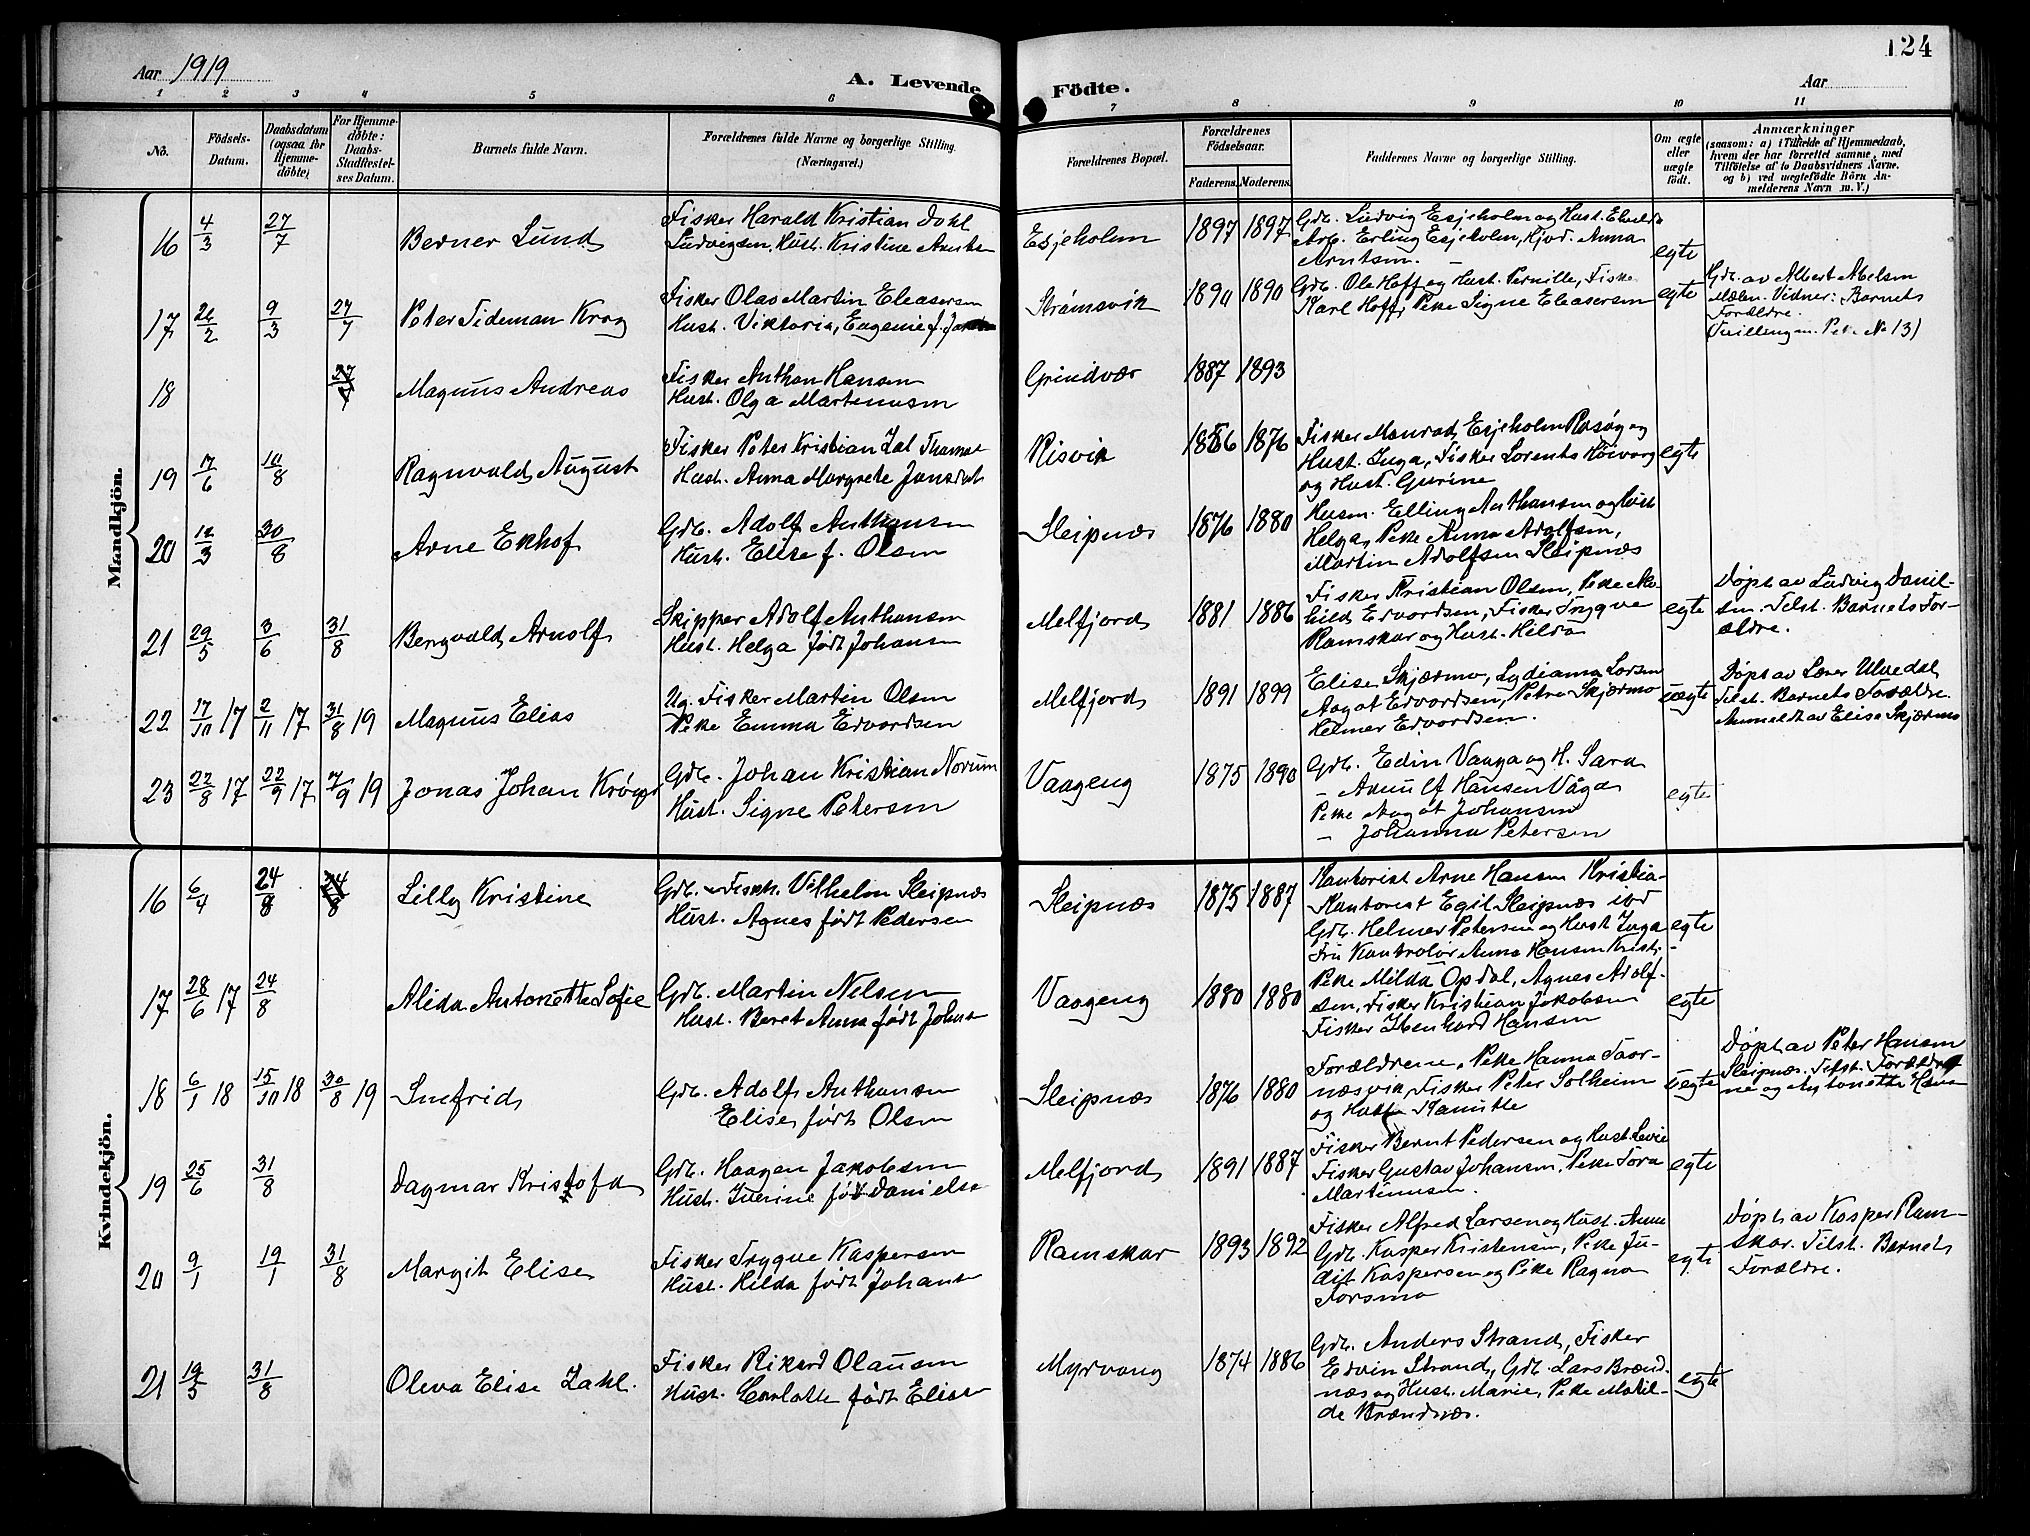 Aar 1919
A. Levende Födte.
Aar
124
1 2 3 4 5 6 7 8 9 10 11
No.
Födsels-Datum.
Daabsdatum (ogsaa for Hjemme-döbte)
For Hjemme-döbte: Daabs-Stadfestel-ses Datum.
Barnets fulde Navn.
Forældrenes fulde Navne og borgerlige Stilling. (Næringsvei.)
Forældrenes Bopæl.
Forældrenes Födselsaar.
Faderens. Moderens.
Faddernes Navne og borgerlige Stilling.
Om ægte eller uægte födt.
Anmærkninger (saasom: a) i Tilfælde af Hjemmedaab, hvem der har forrettet samme, med Tilföielse af to Daabsvidners Navne. og b) ved uægtefödte Börn An-melderens Navn m. V.)
Mandkjön.
16 4/3 27/7 Berner Lund
Fisker Harald Kristian Dahl
Ludvigsen, Hust. Kristine
Esjeholm 1897 1897
Gdb. Ludvig Esjeholm og Hust.
Arb. Erling Esjeholm, Anna
Arntsen.
egte
17 9/3 27/7 Peter Tideman Krog
Fisker Olav Martin Eleasersen
Hust. Viktoria, Eugenie f.
Strömsvik 1890 1890
Gdb. Ole Hoff og Hust. Pernille, Fisker
Karl Hoff, Pike Signe Eleasersen
egte
Gdb. av Albert Abelsen
Mælen. Vidner: Barnets
Forældre.
Tvilling m. Pike No 13)
18 27/7 Magnus Andreas
Fisker Anthon Hansen
Hust. Olga Martenusen
Grindvær 1887 1893
19 7/6 10/8 Ragnvald August
Fisker Peter Kristian Zal
Hust. Anna Margrete
Risvik 1876
Fisker Monrad Esjeholm Rosöy og
Hust. Inga, Fisker Lorents
og Hust. Gurine
egte
20 12/3 30/8 Arne Ekhof
Gdb. Adolf Anthonsen
Hust. Elise f. Olsen
Sleipnæs 1876 1880
Husm. Elling Anthonsen og Hust.
Helga, Pike Anna Adolfsen,
Martin Adolfsen Sleipnæs
21 29/5 3/6 31/8 Bergvald Arnolf
Skipper Adolf Anthonsen
Hust. Helga født Johansen
Melfjord 1881 1886
Fisker Kristian Olsen, Pike
hild Edvardsen, Fisker Trygve
Ramskar og Hust. Hilda
egte
Døpt av Ludvig Daniel-
sen. Tilst. Barnets For-
ældre.
22 17/10 17 2/11 17 31/8 19 Magnus Elias
Ug. Fisker Martin Olsen
Pike Emma Edvardsen
Melfjord 1891 1899
Elise Skjærmo, Lydianna Larsen
Aagot Edvardsen, Petra Skjærmo
Helmer Edvardsen.
uegte
Døpt av Lærer Ulvedal
Tilst. Barnets Forældre.
Anmeldt av Elise Skjærmo
23 22/8 17 22/9 17 7/9 19 Jonas Johan
Gdb. Johan Kristian Norum
Hust. Signe Petersen
Vaageng 1875 1890
Gdb. Edin Vaaga og H. Sara
- Arnulf Hansen Våga
Pike Aagot Johansen
- Johanna Petersen
egte
Kvindekjön.
16 6/4 24/8 24/8 Lilly Kristine
Gdb. Vilhelm Sleipnæs
Hust. Agnes født Pedersen
Sleipnæs 1875 1887
Kontorist Arne Hansen Kristia-
Kontorist Egil Sleipnæs
Gdb. Helmer Petersen og Hust Inga
Fru Kontrolør Anna Hansen Krist.
egte
17 28/6 17 24/8 Alida Antonette Sofie
Gdb. Martin Nelsen
Hust. Beret Anna født
Vaageng 1880 1880
Pike Milda Opdal, Agnes Adolf-
sen, Fisker Kristian Jakobsen
Fisker Hansen
egte
18 6/1 18 15/10 18 30/8 19
Gdb. Adolf Anthonsen
Elise født Olsen
Sleipnæs 1876 1880
Forældrene, Pike Hanna Taor-
næsvik, Fisker Peter Solheim
og
uegte
Døpt av Peter Hansen
Sleipnæs. Tilst. Forældre
ne og Antonette
19 25/6 31/8 Dagmar Kristofa
Gdb. Haagen Jakobsen
Hust. født
Melfjord 1891 1887
Fisker Bernt Pedersen og Hust.
Fisker Gustav Johansen, Pike Tora
Martenusen.
egte
20 9/1 19/1 31/8 Margit Elise
Fisker Trygve Kaspersen
Hust. Hilda født
Ramskar 1893 1892
Fisker Alfred Larsen og Hust. Anna
Gdb. Kasper Kristensen, Pike Ju-
dit Kaspersen og Pike Ragna
Forsmo
egte
Døpt av Kasper Ram-
skar. Tilst. Barnets
Forældre.
21 19/5 31/8 Oleva Elise Zahl.
Fisker Rikard Olausen
Hust. født
Myrvang 1874 1886
Gdb. Anders Strand, Fisker
Edvin Strand, Gdb. Lars Brænd-
næs og Hust. Marie, Pike Matil-
de Brændnæs.
egte